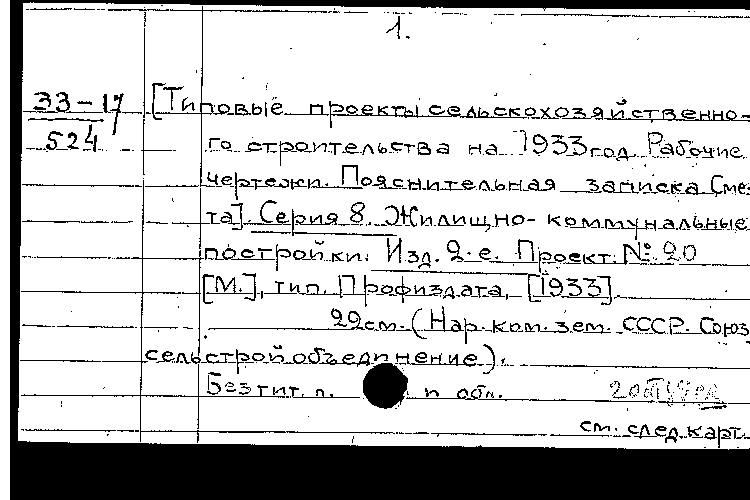 1.
33-17 [Типовые проекты сельскохозяйственно-
524 го строительства на 1933 год. Рабочие
чертежи. Пояснительная записка. Сме-
та]. Серия 8. Жилищно-коммунальные
постройки. Изд. 2-е. Проект № 20
[М.], тип. Профиздата, [1933].
22 см. (Нар. ком. зем. СССР. Союз
сельстройобъединение).
Без тит. л. и обл.
см. след. карт.